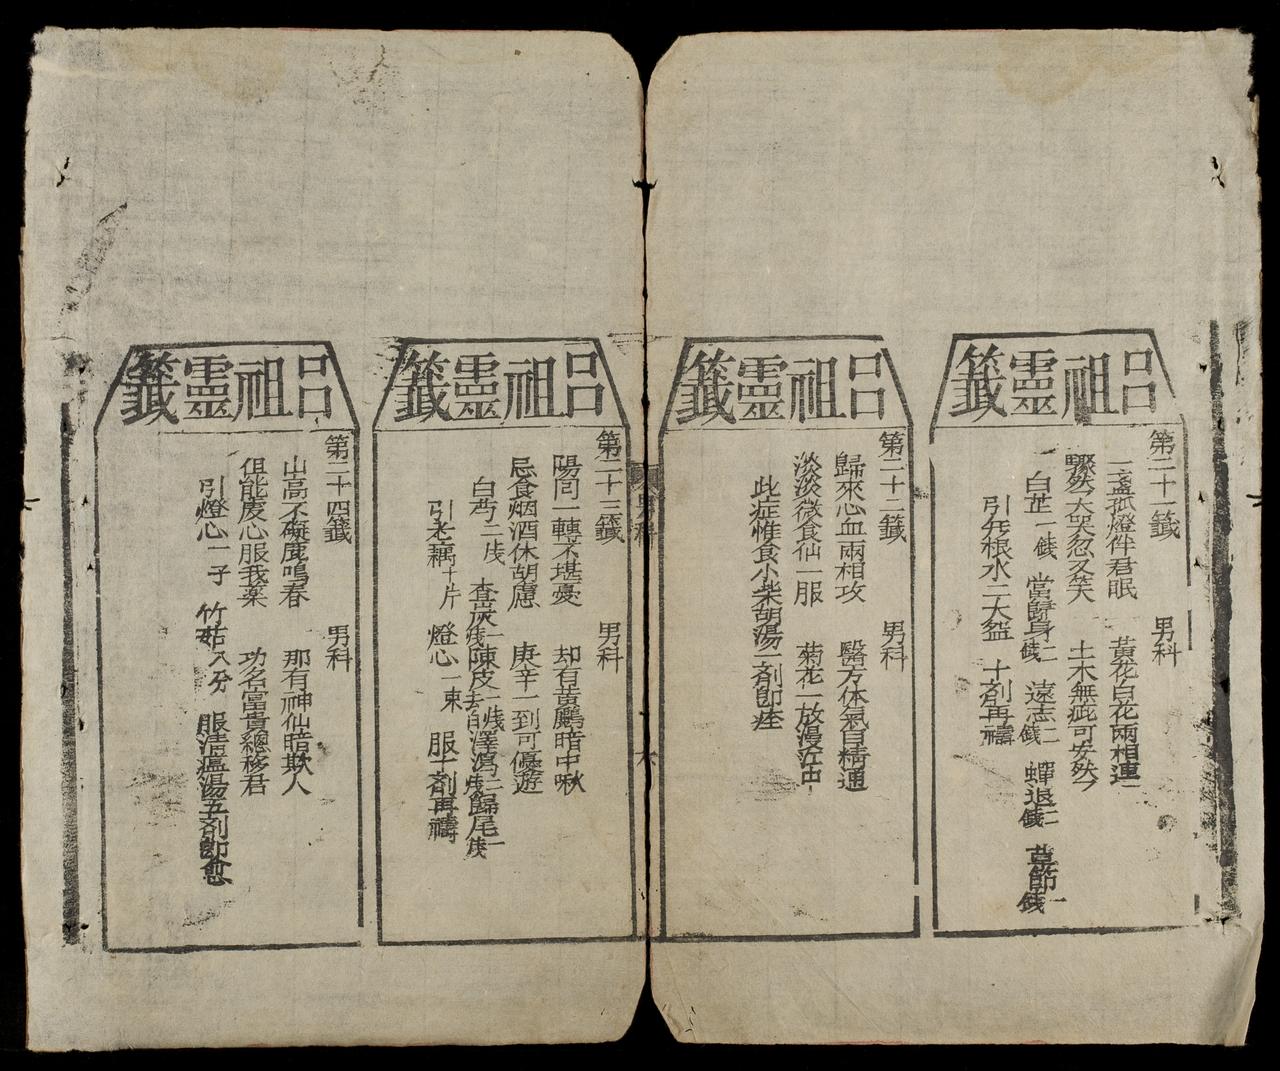 呂祖靈籤
第二十一籤 男科
三盞孤燈伴君眠 黃花白花兩相連
驟然大哭忽又笑 土木無疵可安然
白芷一錢 當歸身二錢 遠志二錢 蟬退二錢 草節一錢
引 根水二大盌 十剤再禱
呂祖靈籤
第二十二籤 男科
歸來心血兩相攻 醫方体氣自精通
淡淡微食仙一服 菊花一放漫在中
此症惟食小柴胡湯一剤即痊
呂祖靈籤
第二十三籤 男科
陽同一轉不堪憂 却有黃鸝暗中啾
忌食烟酒休胡慮 庚辛一到可優遊
白芍二戋 查炭一戋 陳皮去白一戋 澤瀉二戋 歸尾一戋
引老藕十片 燈心一束 服十剤再禱
男科
六
呂祖靈籤
第二十四籤 男科
山高不礙鹿鳴春 那有神仙暗欺人
但能虔心服我藥 功名富貴總移君
引燈心一子 竹茹八分 服清瘟湯五剤即愈